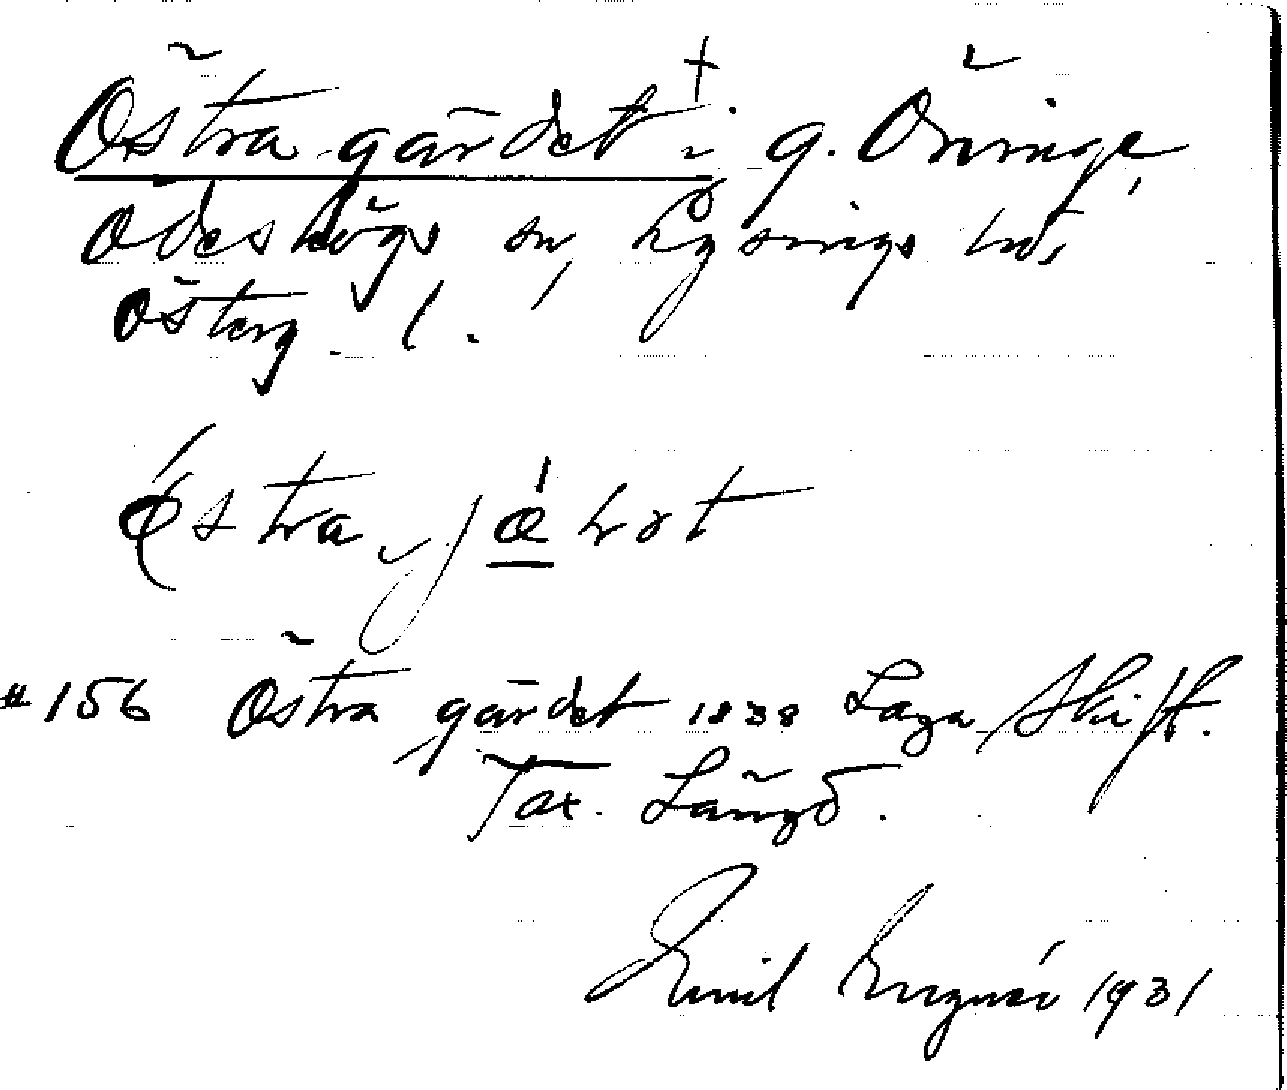 Östra gärdet + i g. Öninge,
Ödeshögs sn, Lysings hd,
Österg. l.
östra jæ
#156 Östra gärdet 1838 Laga Skift.
Tax. Längd.
Emil 1931